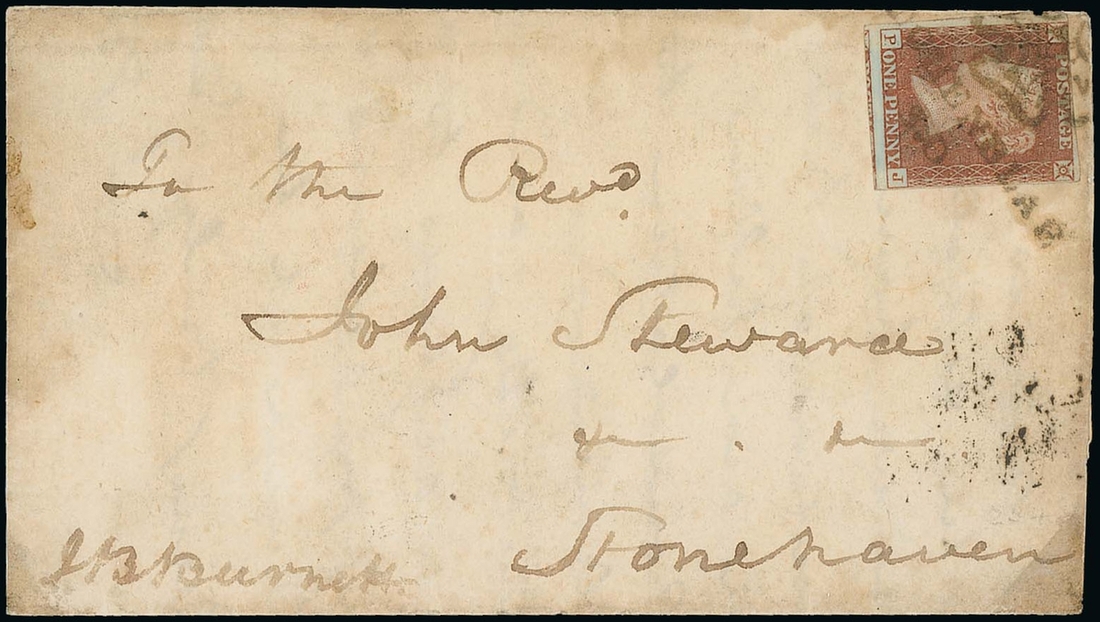 POSTAGE
P ONE PENNY J
To the Revd.
John Steward
Stonehaven
JB Burnett